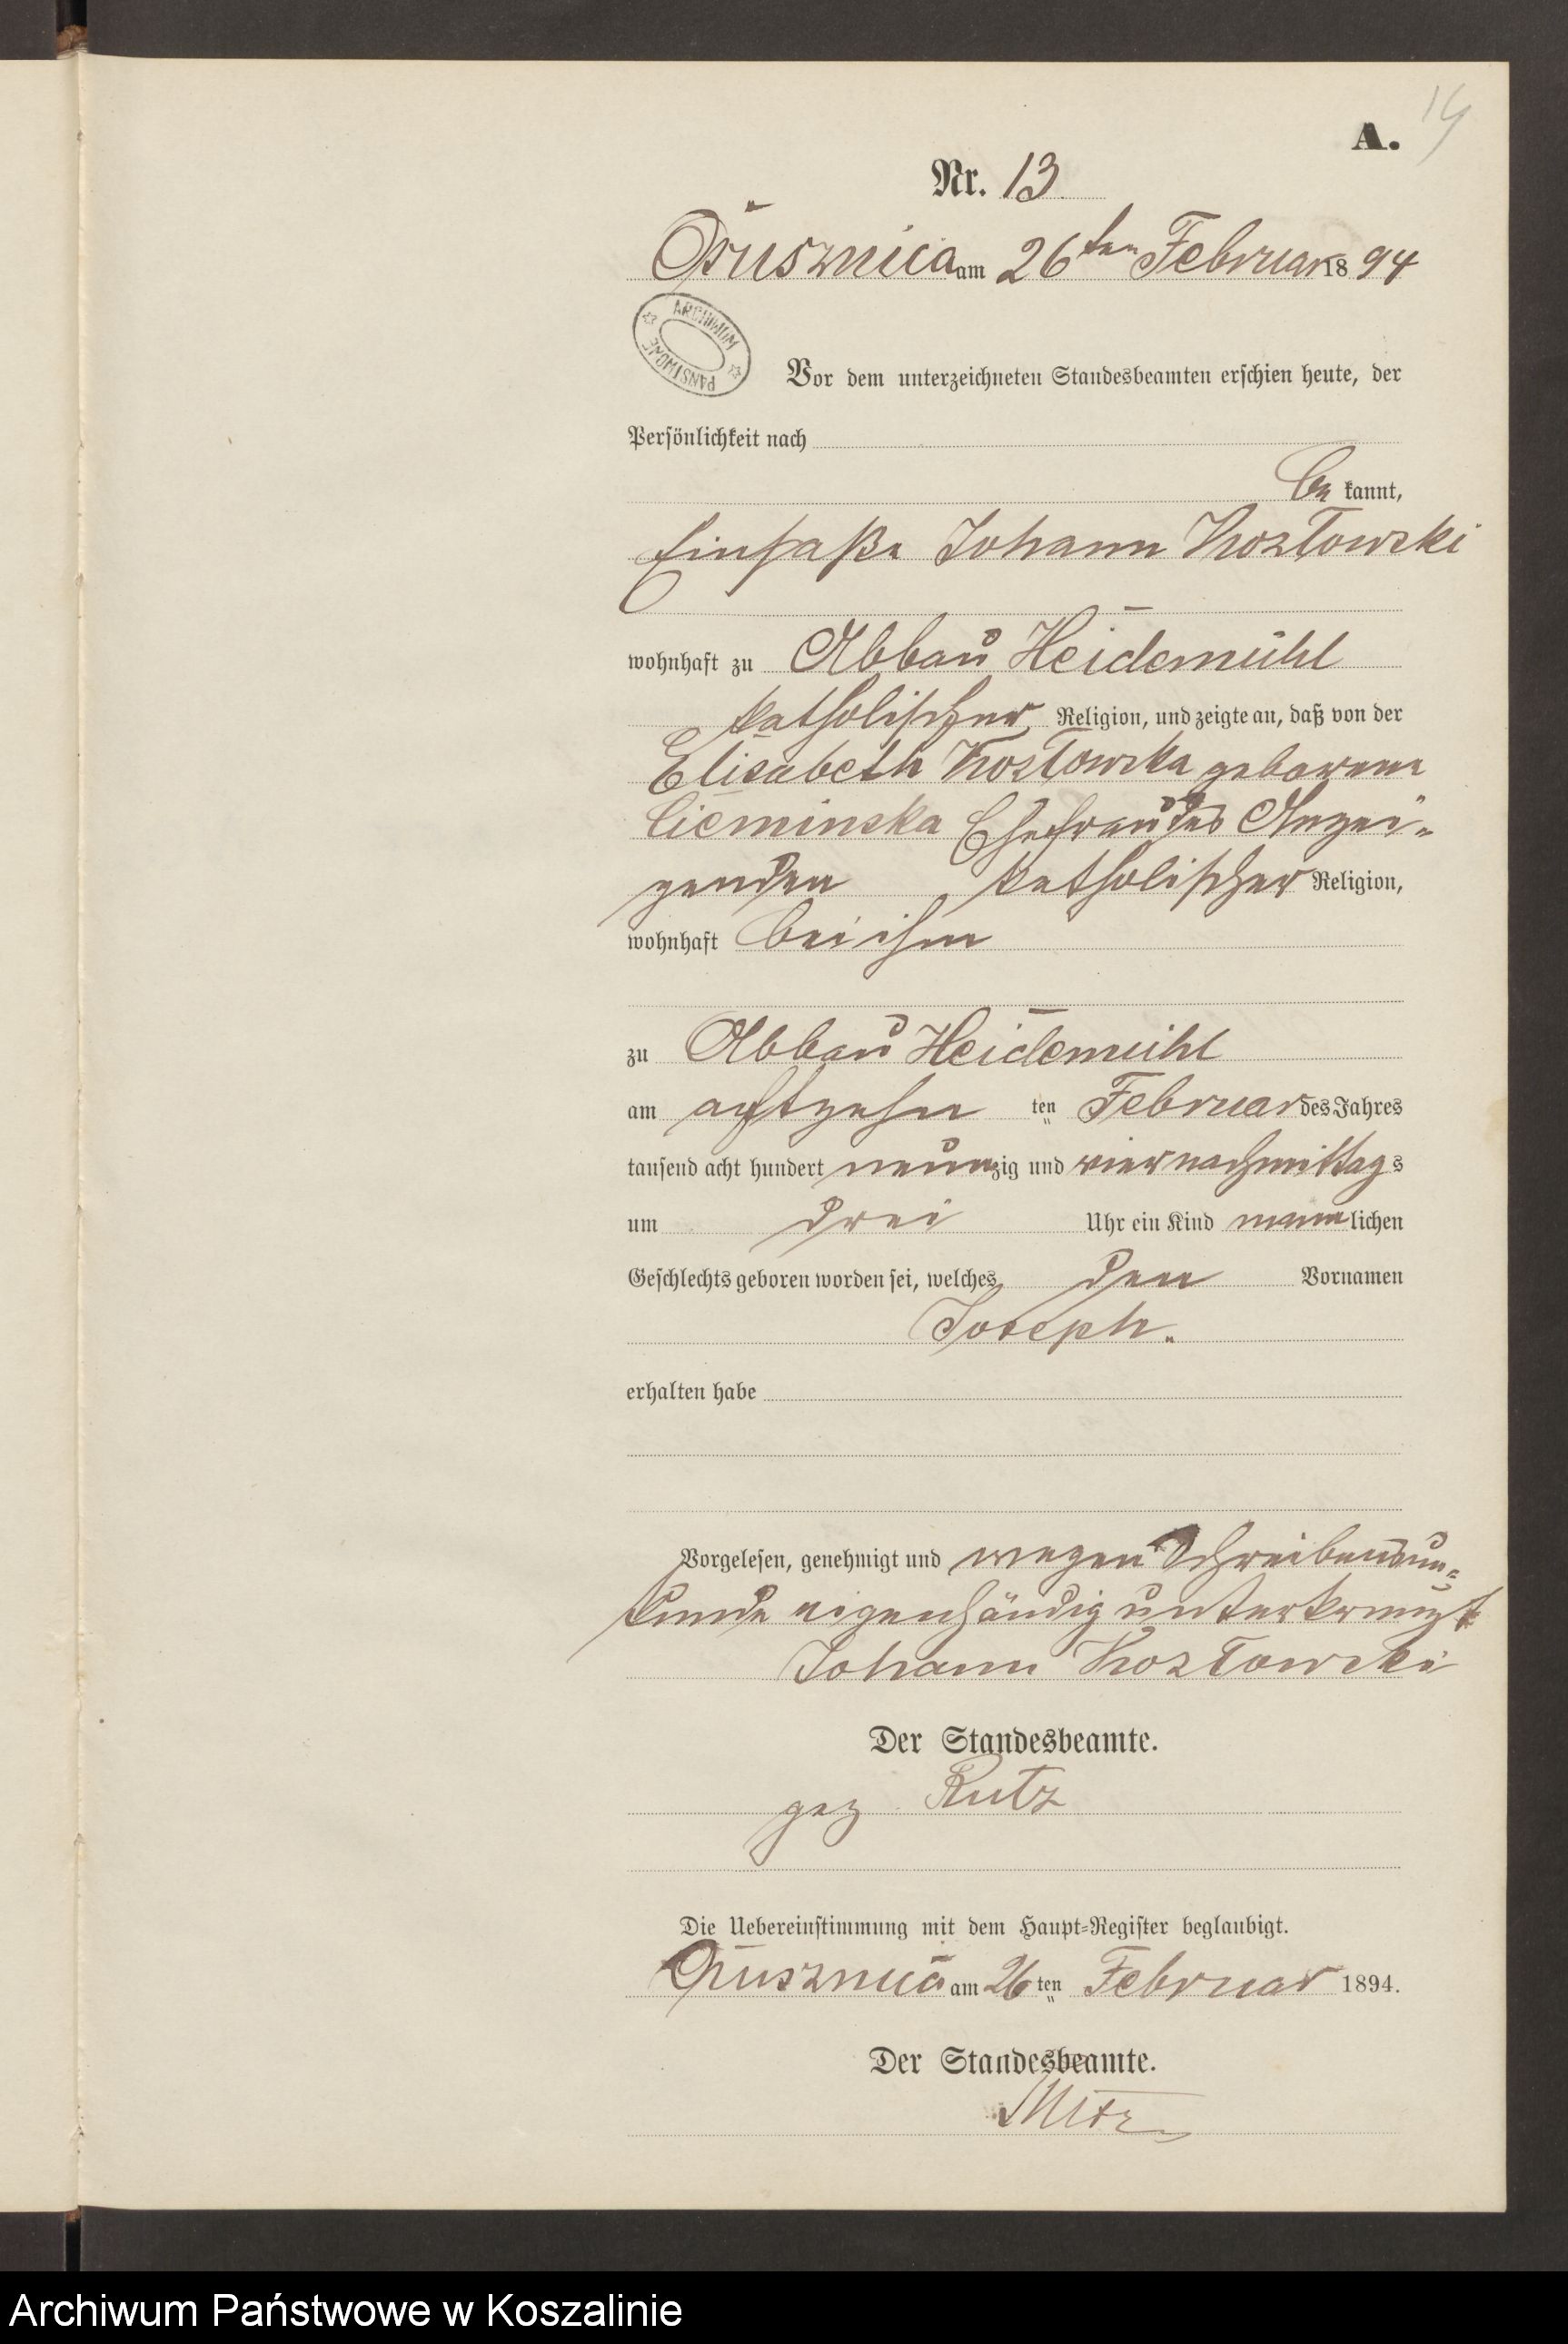 14
A.
Nr. 13
Ostusznica am 26ten Februar 1894
ARCHIWUM PAŃSTWOWE
Vor dem unterzeichneten Standesbeamten erschien heute, der
Persönlichkeit nach
be kannt,
Einsaße Johann Kozlowski
wohnhaft zu Abbau Heidemühl
katholischer Religion, und zeigte an, daß von der
Elisabeth Kozlowska geborene
Cieminska Ehefrau des Anzei-
genden katholischer Religion,
wohnhaft bei ihm
zu Abbau Heidemühl
am achtzehn ten Februar des Jahres
tausend acht hundert neunzig und vier nachmittags
um drei Uhr ein Kind männlichen
Geschlechts geboren worden sei, welches den Vornamen
Joseph.
erhalten habe
Vorgelesen, genehmigt und wegen Schreibensun-
kunde eigenhändig unterkreuzt
Johann Kozlowski
Der Standesbeamte.
gez Rutz
Die Uebereinstimmung mit dem Haupt-Register beglaubigt.
am 26ten Februar 1894.
Der Standesbeamte.
Archiwum Państwowe w Koszalinie